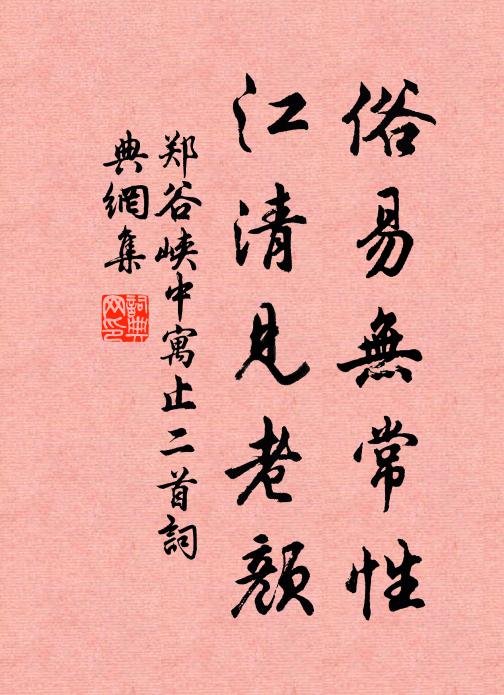 俗易無常性
江清見老顏
郑谷峡中寓止二首詞
典網集
詞典
网印